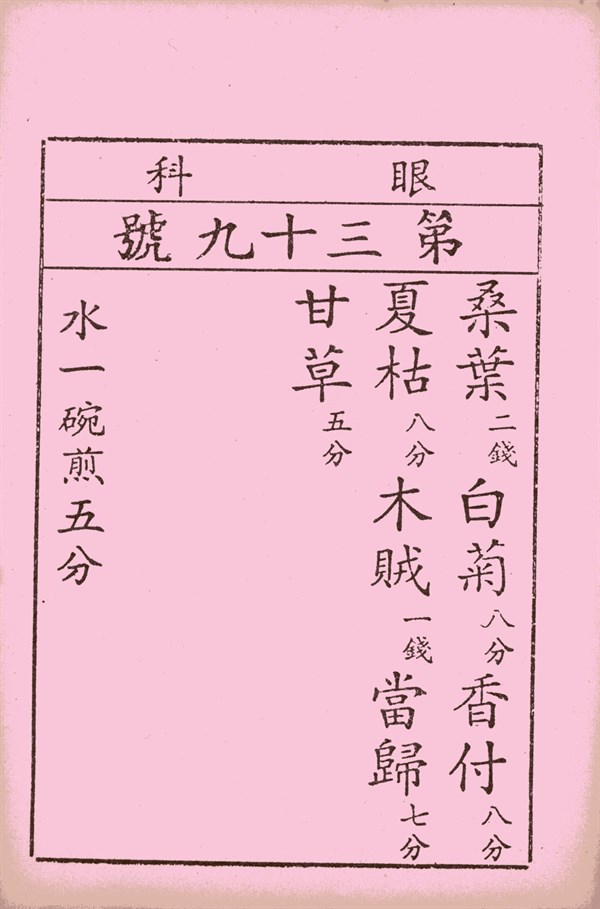 眼科
第三十九號
桑葉二錢白菊八分香付八分
夏枯八分木賊一錢當歸七分
甘草五分
水一碗煎五分